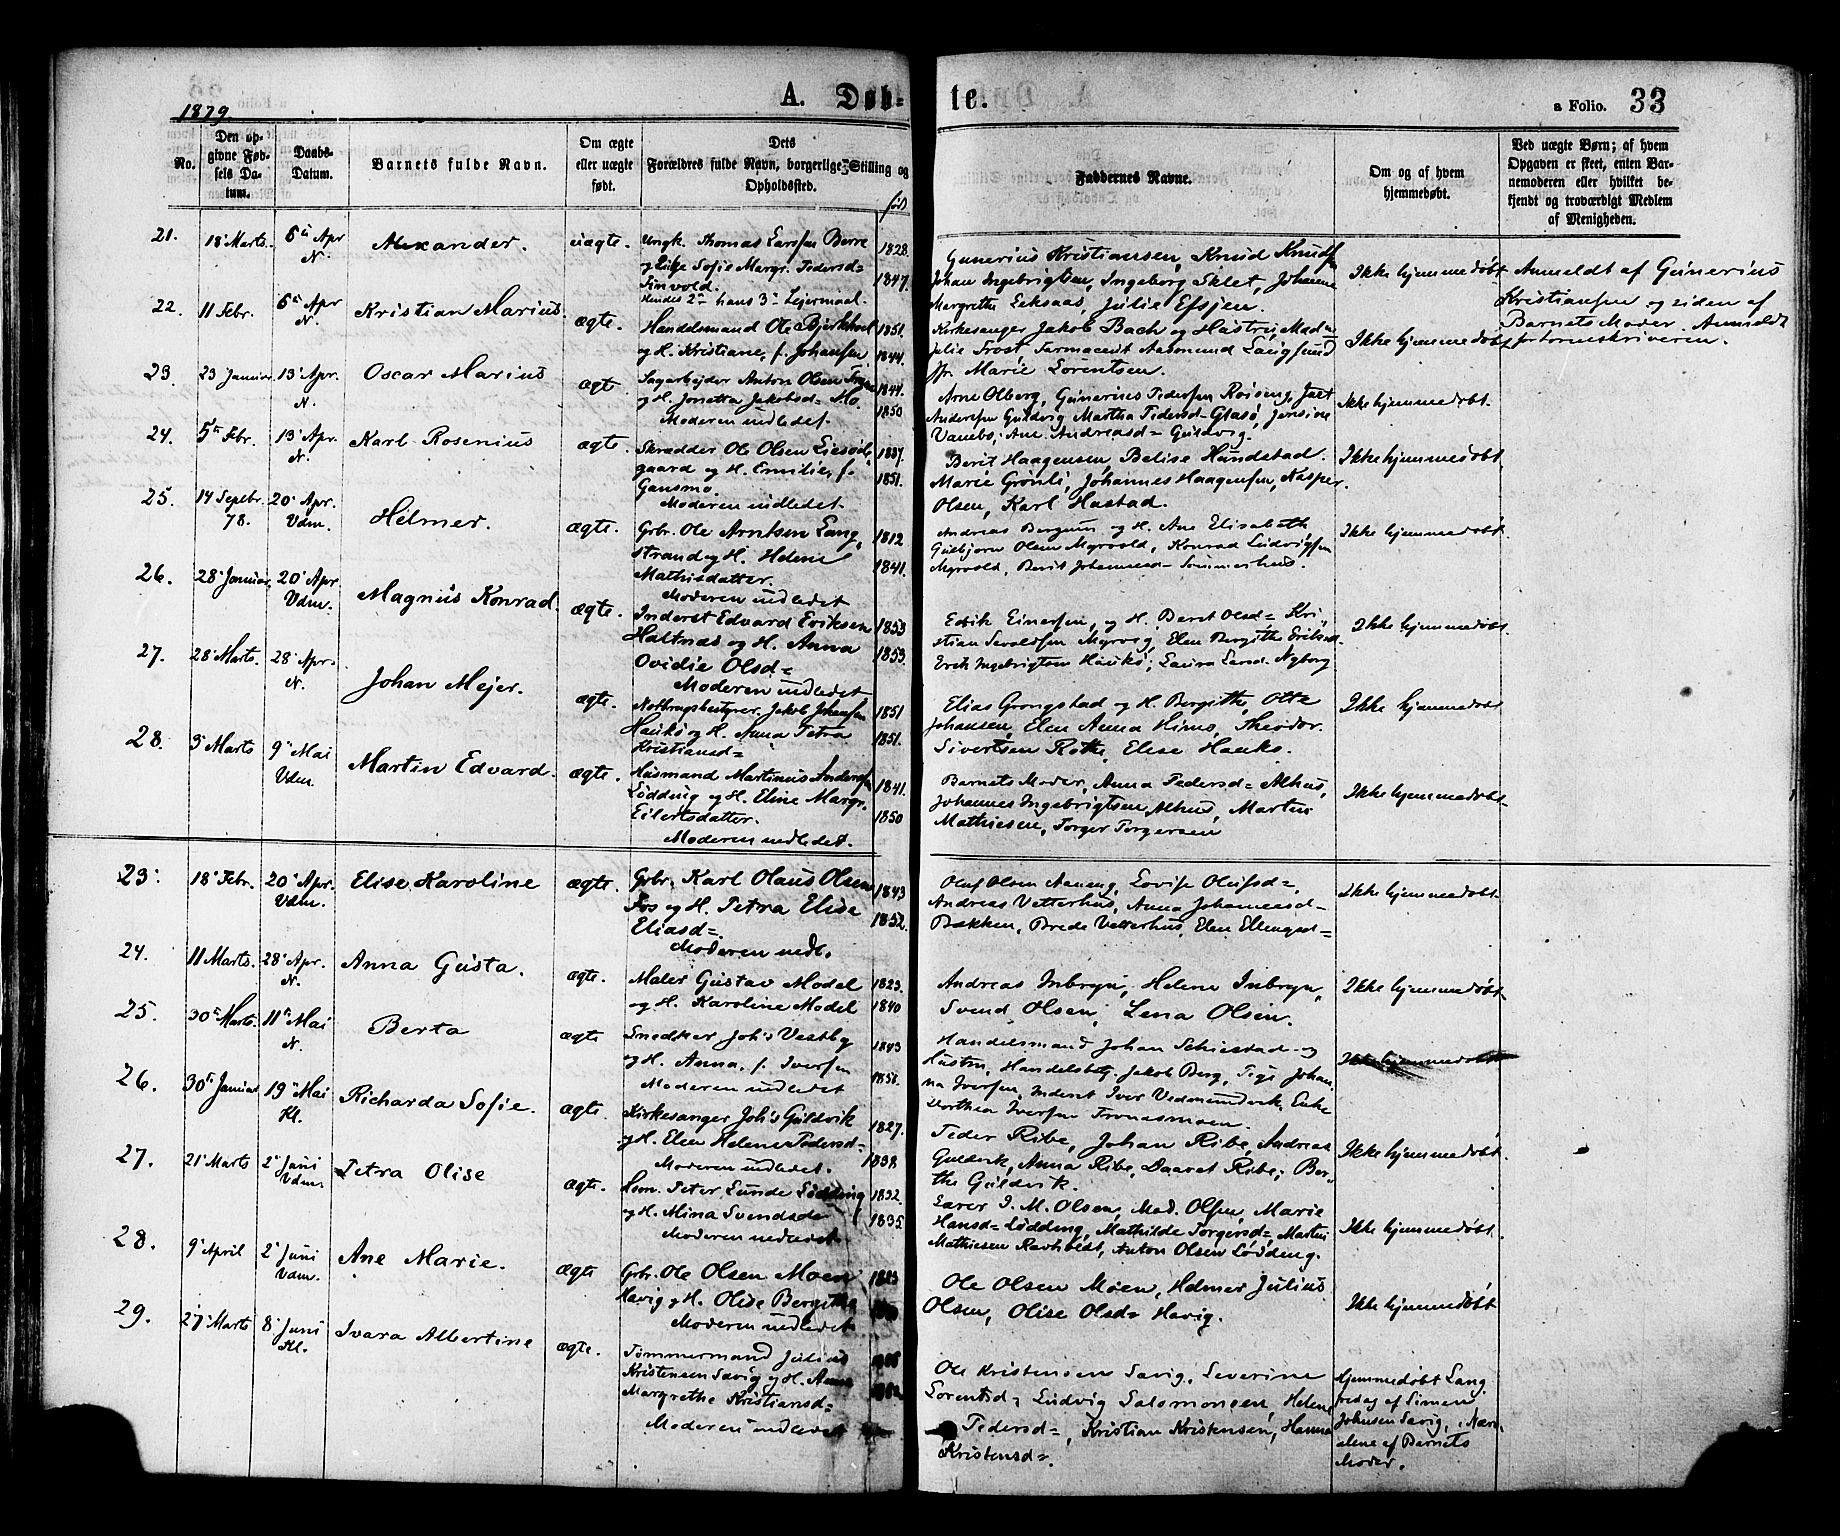 1879
A. Døb-
te.
a Folio. 33
No.
Den op-
givne Fød-
sels Da-
tum.
Daabs-
Datum.
Barnets fulde Navn.
Om ægte
eller uægte
født.
Dets
Forældres fulde Navn, borgerlige Stilling og
Opholdssted.
Faddernes Navne.
Om og af hvem
hjemmedøbt.
Ved uægte Børn; af hvem
Opgaven er skeet, enten Bar-
nemoderen eller hvilket be-
kjendt og troværdigt Medlem
af Menigheden.
21.
18 Marts.
6 Apr
N.
Alexander.
uægte.
Ungk. Thomas Larssen Borre
og Pige Sofie Margr. Pedersd=
Finvold.
Hendes 2 hans 3 Lejermaal
1828.
1847.
Gunerius Kristiansen, Knud Knuds
Johan Ingebrigtsen, Ingeborg Sklet, Johanna
Margrethe Leksaas, Julie Efsjen.
Ikke hjemmedøbt
Anmeldt af Gunerius
Kristiansen og siden af
Barnets Moder. Anmeldt
22.
11 Febr.
6 Apr
N.
Kristian Marius.
ægte.
Handelsmand Ole Bjerkholt
og H. Kristiane, f. Johansen
1851.
1844.
Kirkesanger Jakob Bach og Hustru, Mad=
Julie Frost, Farmaceut Aasmund Laugsund
Fr. Marie Lorentsen.
Ikke hjemmedøbt
23.
23 Januar
13 Apr.
N.
Oscar Marius
ægte.
Sagarbejder Anton Olsen
og H. Jonetta Jakobsd= Mo.
Moderen indledet.
1844.
1850
Arne Olberg, Gunerius Pedersen Røising, Jaet
Andersen Guldvig Martha Pedersd= Glasø, Jensine
Vanebo, Ane Andreasd= Guldvig.
Ikke hjemmedøbt.
24.
5 Febr.
13 Apr.
N.
Karl Rosenius
ægte.
Skrædder Ole Olsen Liesøde
gaard og H. Emilie, f.
Gansmo.
Moderen indledet.
1837.
1851.
Berit Haagensen, Belise Hundstad.
Marie Grønli, Johannes Haagensen, Kasper
Olsen, Karl Hustad.
Ikke hjemmedøbt.
25.
14 Septbr.
78.
20 Apr.
Vdm.
Helmer.
ægte.
Grbr. Ole Arntsen Lang,
strand og H. Helene
Mathisdatter.
Moderen indledet
1812
1841.
Andreas Bergum og H. Ane Elisabeth
Gulbjørn Olsen Myrvold, Konrad Ludvigsen
Myrvold, Berit Johannesd= Sommerhus.
Ikke hjemmedøbt.
26.
28 Januar.
20 Apr.
Vdm.
Magnus Konrad.
ægte.
Inderst Edvard Eriksen
Haltnæs og H. Anna
Ovidie Olsd=
Moderen indledet
1853
1853.
Edvik Einersen, og H. Beret Olsd= Kri,
stian Sevaldsen Myrvig, Elen Bergithe Eriksd.
Erik Ingebrigtsen Haukø, Laura Larsd. Nyborg
Ikke hjemmedøbt.
27.
28 Marts.
28 Apr.
N.
Johan Mejer.
ægte.
Notbrugsbestyrer Jakob Johansen
Haukø og H. Anna Petra
Kristiansd=
1851
1851.
Elias Grongstad og H. Bergitte, Otte
Johansen, Elen Anna Himo, Theodor
Sivertsen Rothe, Elise Hauko.
Ikke hjemmedøbt
28.
3 Marts
9 Mai
Vdm.
Martin Edvard.
ægte.
Husmand Martinus Andersen
Lødding og H. Eline Margr.
Eilertsdatter.
Moderen indledet.
1841.
1850
Barnets Moder, Anna Pedersd= Alhus,
Johannes Ingebrigtsen Alhus, Martin
Mathiesen, Torger Torgersen
Ikke hjemmedøbt.
23.
18 Febr.
20 Apr.
Vdm.
Elise Karoline
ægte.
Grbr. Karl Olaus Olsen
Fos og H. Petra Elisa
Eliasd=.
Moderen indl.
1843
1852.
Oluf Olsen Aunang, Lovise Olufsd=,
Andreas Vetterhus, Anna Johannesd=
Bækken, Brede Vetterhus, Elen Ellingsd=
Ikke hjemmedøbt.
24.
11 Marts.
28 Apr.
N.
Anna Gusta.
ægte.
Maler Gustav Model
og H. Karoline Model
1823.
1840
Andreas Inbryn, Helene Inbryn,
Svend Olsen, Lena Olsen.
Ikke hjemmedøbt.
25.
30 Marts.
11 Mai
N.
Berta
ægte
Snedker Joh's Vestby
og H. Anna, f. Iversen
Moderen indledet
1843
1858.
Handelsmand Johan Schiestad og
Hustru, Handelsbtj. Jakob Berg, Pige Johan
na Iversen, Inderst Iver Vedmundvik, Enke
Dorthea Iversen Tronesmoen.
Ikke hjemmedøbt
26.
30 Januar
19 Mai
Kl.
Richarda Sofie.
ægte.
Kirkesanger Joh's Guldvik
og H. Elen Helene Pedersd=
Moderen indledet.
1827.
1838.
Peder Ribe, Johan Ribe, Andreas
Guldvik, Anna Ribe, Daaret Ribe, Ber-
the Guldvik.
Ikke hjemmedøbt.
27.
21 Marts
2 Juni
Vdm.
Petra Olise
ægte.
Hmn. Peter Lunde Lødding
og H. Mina Svendsd=
Moderen indledet.
1832.
1835.
Lærer I. M. Olsen, Mad. Olsen, Marie
Hansd= Lødding, Mathilde Torgersd=, Martin
Mathiesen Ravholdt, Anton Olsen Lødding.
Ikke hjemmedøbt.
28.
9 April
2 Juni
Vdm.
Ane Marie.
ægte
Grbr. Ole Olsen Moen
Havig og H. Olise Bergitha
Moderen indledet.
Ole Olsen Moen, Helmer Julius
Olsen, Olise Olsd= Havig.
Ikke hjemmedøbt
29.
27 Marts
8 Juni
Kl.
Ivara Albertine
ægte.
Tømmermand Julius
Kristensen Savig og H. Anna
Margrethe Kristiansd=
Moderen indledet
Ole Kristensen Savig, Severine
Lorentsd=, Ludvig Salomonsen, Helene
Pedersd=, Kristian Kristensen, Hanna
Kristensd=.
Hjemmedøbt Lang
fredag af Simen
Johnsen Savig, i Nær-
alene af Barnets
Moder.